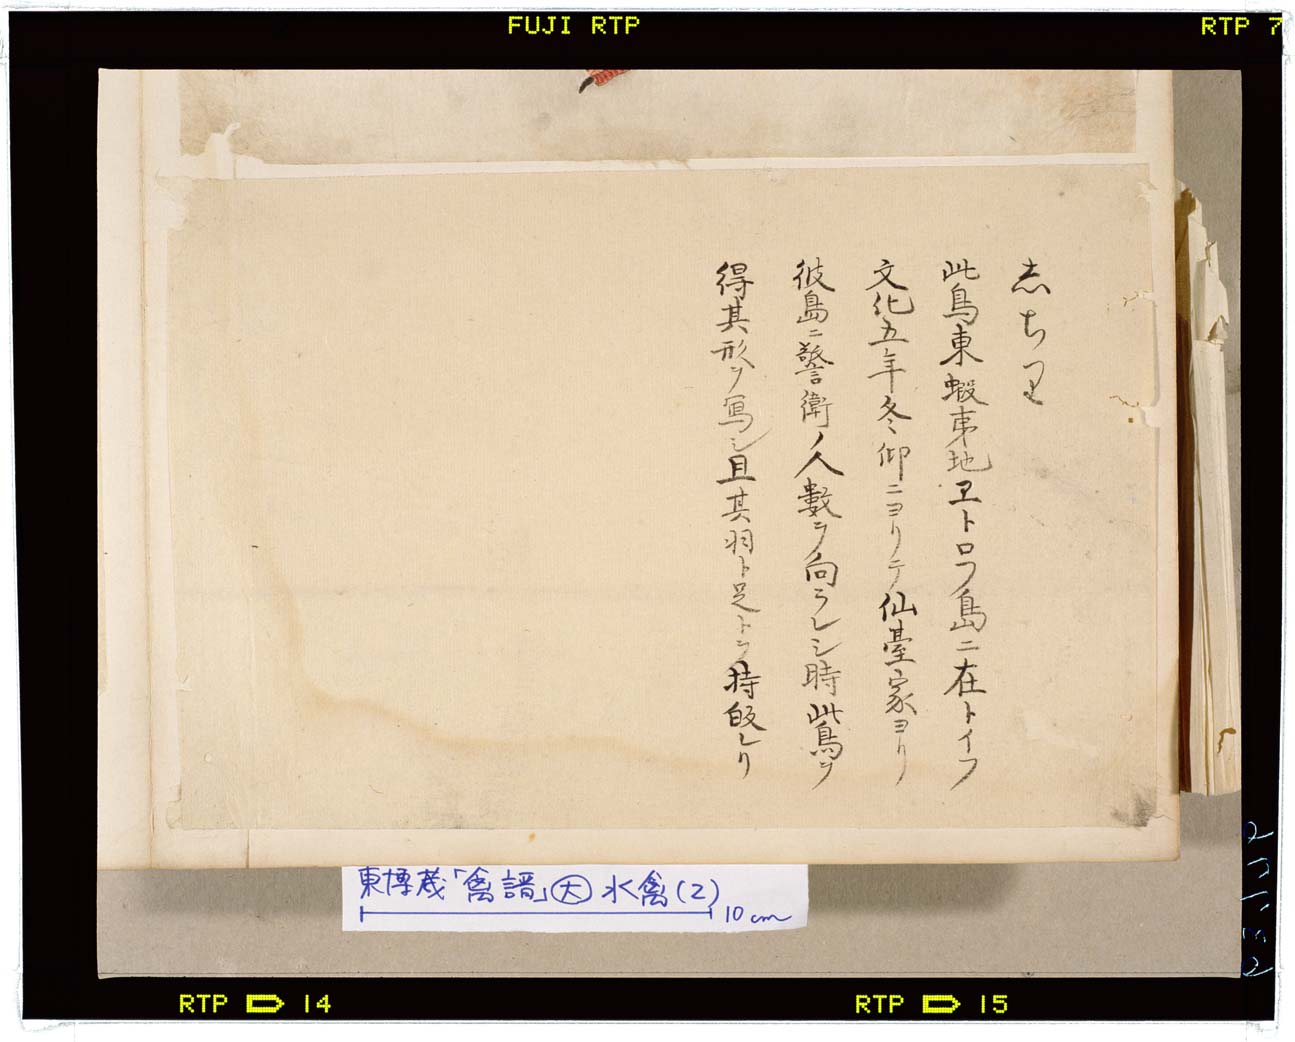 FUJI RTP
RTP 7
志ちり
此鳥東蝦夷地ヱトロフ島ニ在トイフ
文化五年冬仰ニヨリテ仙臺家ヨリ
彼島ニ警衛ノ人數ヲ向ラレシ時此鳥ヲ
得其形ヲ写シ且其羽ト足トヲ持皈レリ
東博蔵「禽譜」大 水禽(2)
10cm
RTP 14
RTP 15